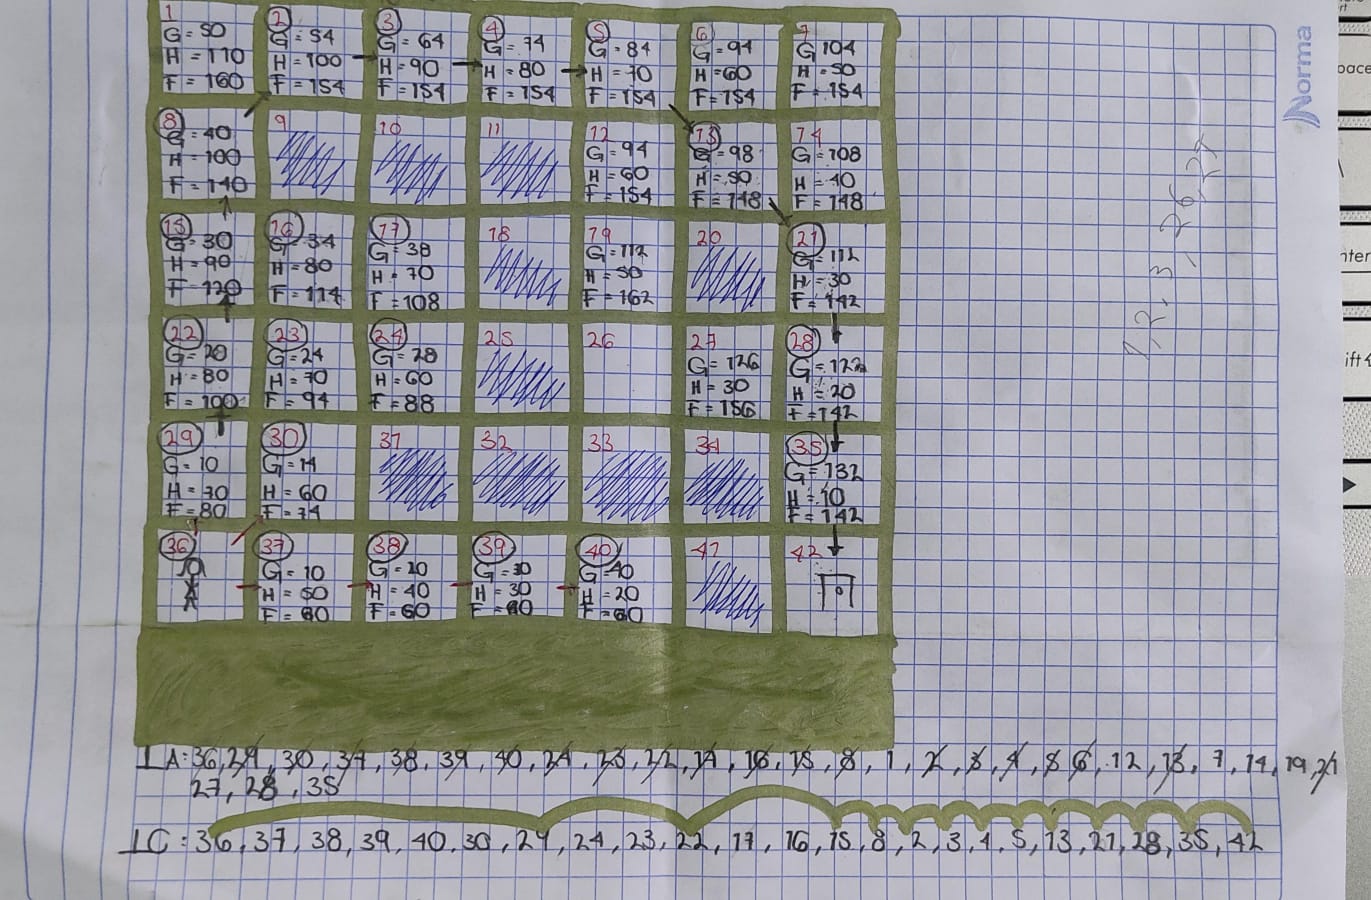 1
G = 50
H = 110
F = 160
2
G = 54
H = 100
F = 154
3
G = 64
H = 90
F = 154
4
G = 74
H = 80
F = 154
5
G = 84
H = 70
F = 154
6
G = 94
H = 60
F = 154
7
G 104
H = 50
F = 154
8
G = 40
H = 100
F = 140
9
10
11
12
G = 94
H = 60
F = 154
13
G = 98
H = 50
F = 148
14
G = 108
H = 40
F = 148
15
G = 30
H = 90
F = 120
16
G = 34
H = 80
F = 114
17
G = 38
H = 70
F = 108
18
19
G = 112
H = 50
F = 162
20
21
G = 112
H = 30
F = 142
22
G = 20
H = 80
F = 100
23
G = 24
H = 70
F = 94
24
G = 28
H = 60
F = 88
25
26
27
G = 126
H = 30
F = 156
28
G = 122
H = 20
F = 142
29
G = 10
H = 70
F = 80
30
G = 14
H = 60
F = 74
31
32
33
34
35
G = 132
H = 10
F = 142
36
37
G = 10
H = 50
F = 60
38
G = 20
H = 40
F = 60
39
G = 30
H = 30
F = 60
40
G = 40
H = 20
F = 60
41
42
LA: 36, 29, 30, 37, 38, 39, 40, 24, 23, 22, 17, 16, 15, 8, 1, 2, 3, 4, 5 6, 12, 13, 7, 14, 19, 21
27, 28, 35
LC: 36, 37, 38, 39, 40, 30, 29, 24, 23, 22, 17, 16, 15, 8, 2, 3, 4, 5, 13, 21, 28, 35, 42
Norma
pace
nter
ift